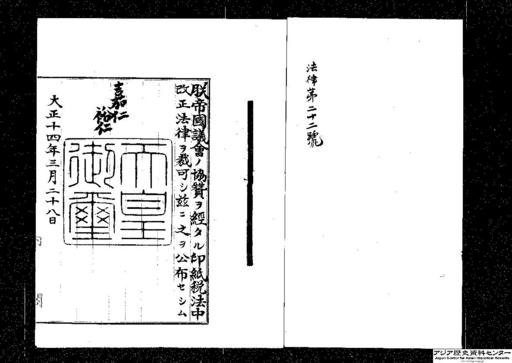 法律第二十二號
朕帝國議會ノ協贊ヲ經タル印紙稅法中
改正法律ヲ裁可シ玆ニ之ヲ公布セシム
嘉仁
裕仁
天皇御璽
大正十四年三月二十八日
内閣
アジア歴史資料センター
Japan Center for Asian Historical Records